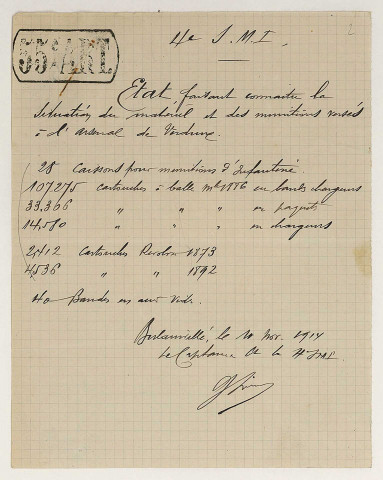 55e ART
4e S.M.I.
Etat, faisant connaitre la
situation du matériel et des munitions versés
à l'arsenal de Verdun.
28 Caissons pour munitions d'Infanterie
107275 cartouches à balle mle 1886 en bandes chargeurs
33.306 " " " en paquets
14,510 " " en chargeurs
2,412 Cartouches Revolver 1873
4,536 " " 1892
40 Bandes
le 10 Nov. 1914
Le Capitaine Ct la 4e SMI